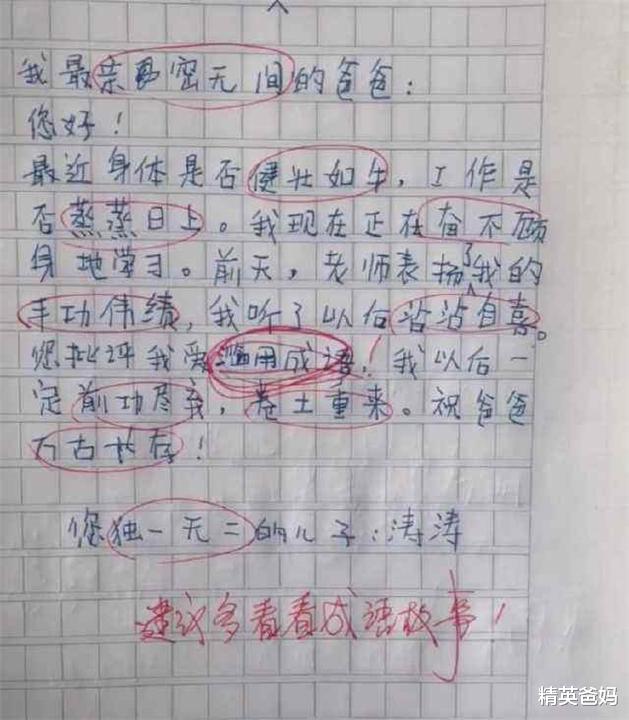 我最亲密无间的爸爸：
您好！
最近身体是否健壮如牛，工作是
否蒸蒸日上。我现在正在奋不顾
身地学习。前天，老师表扬了我的
丰功伟绩，我听了以后沾沾自喜。
您批评我爱滥用成语！我以后一
定前功尽弃，卷土重来。祝爸爸
万古长存！
您独一无二的儿子：涛涛
建议多看看成语故事！
精英爸妈